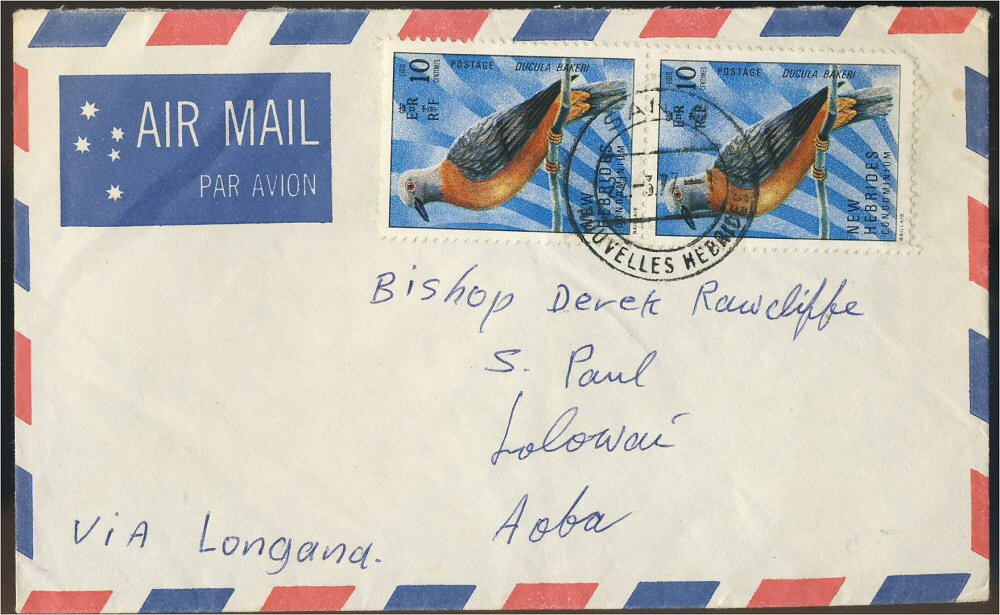 AIR MAIL
PAR AVION
GOLD
10
CENTIMES
POSTAGE
DUCULA BAKERI
E II R
RF
NEW
HEBRIDES
CONDOMINIUM
BAILLAIS
GOLD
10
CENTIMES
POSTAGE
DUCULA BAKERI
E II R
RF
NEW
HEBRIDES
CONDOMINIUM
BAILLAIS
77
NOUVELLES HEBRIDES
Bishop Derek Rawcliffe
S. Paul
Lolowai
Aoba
Via Longana.